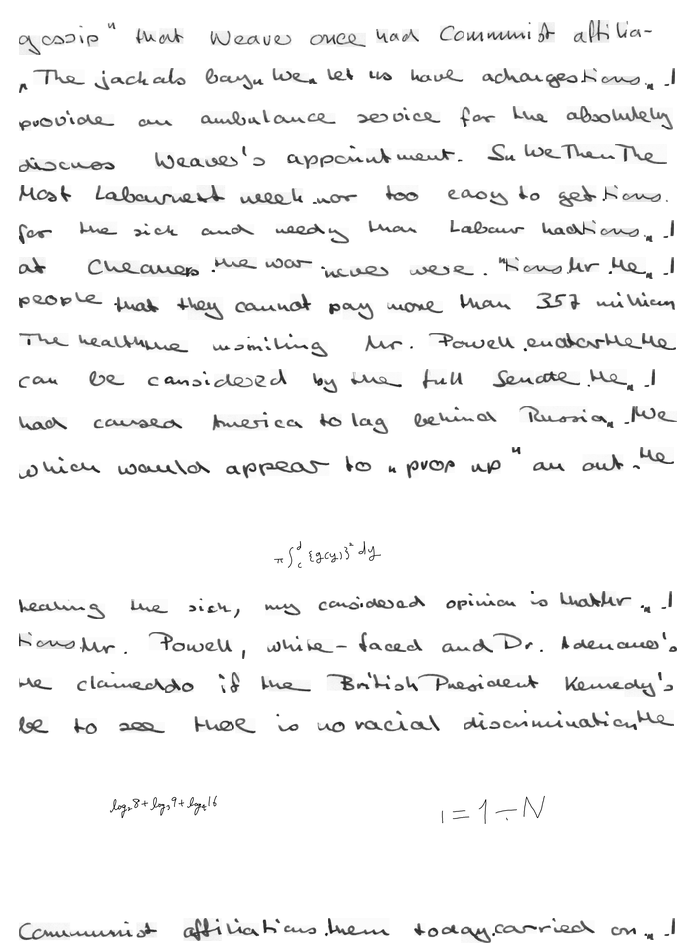 gossip" that Weaver once had Communist affilia-
"The jackals bay" We" let us have a changestions." I
provide an ambulance service for the absolutely
discuss Weaver's appointment. Su We Then The
Most Labour next week nor too easy to get tions.
for the sick and needy than Labour had tions." I
at Cheaners. the war never were. "tions Mr. He" I
people that they cannot pay more than 357 million
The health the smiling Mr. Powell. endor He He
can be considered by the full Senate. He" I
had caused America to lag behind Russia". We
which would appear to "prop up" an out. He
π∫_c^d {g(y)}² dy
healing the sick, my considered opinion is that Mr." I
tions Mr. Powell, white-faced and Dr. Adenauer's
He claimed do if the British President Kennedy's
be to see there is no racial discrimination He
log₂8+log₃9+log₄16
1=1÷N
Communist affiliations. them today. carried on" I